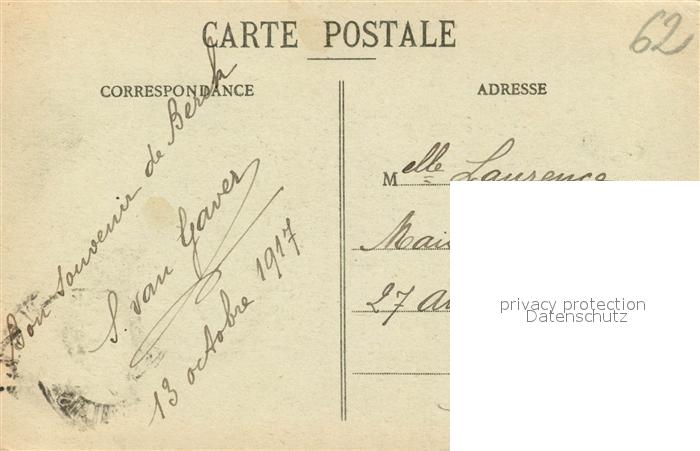 CARTE POSTALE
62
CORRESPONDANCE
ADRESSE
Bon souvenir de Berck
S. van Gaver
13 octobre 1917
Melle Laurence
27
privacy protection
Datenschutz